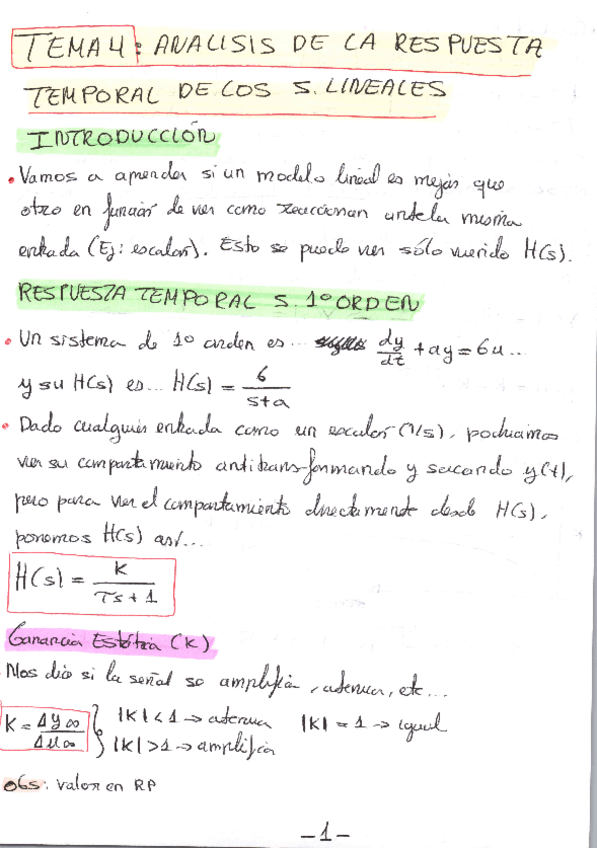 TEMA 4: ANALISIS DE LA RESPUESTA
TEMPORAL DE LOS S. LINEALES
INTRODUCCIÓN
• Vamos a aprender si un modelo lineal es mejor que
otro en función de ver como reaccionan ante la misma
entrada (Ej: escalón). Esto se puede ver sólo viendo H(s).
RESPUESTA TEMPORAL S. 1º ORDEN
• Un sistema de 1º orden es... dy/dt + ay = bu...
y su H(s) es... H(s) = b/(s+a)
• Dado cualquier entrada como un escalón (1/s), podríamos
ver su comportamiento antitransformando y sacando y(t),
pero para ver el comportamiento directamente desde H(s),
ponemos H(s) así...
H(s) = K/(τs + 1)
Ganancia Estática (K)
Nos dice si la señal se amplifica, atenua, etc...
K = Δy∞/Δu∞ } |K| < 1 → atenua |K| = 1 → igual
|K| > 1 → amplifica
obs: valor en RP
-1-